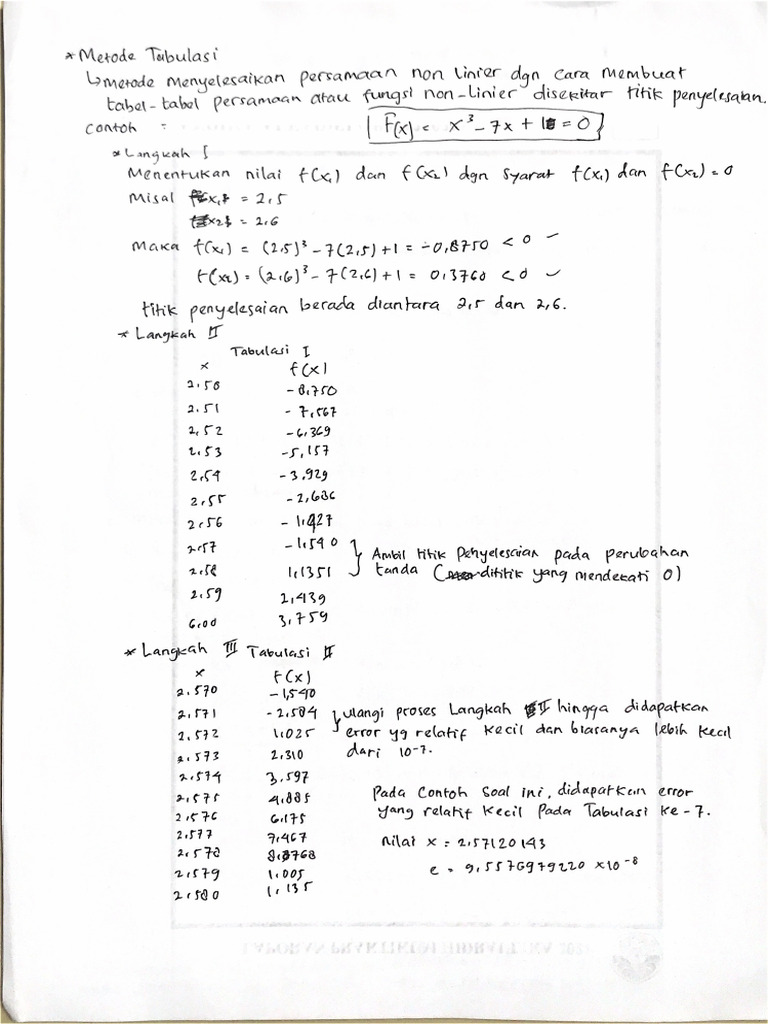 * Metode Tabulasi
↳ metode menyelesaikan persamaan non linier dgn cara membuat
tabel-tabel persamaan atau fungsi non-linier disekitar titik penyelesaian.
contoh : F(x) = x³ - 7x + 1 = 0
* Langkah I
Menentukan nilai f(x₁) dan f(x₂) dgn syarat f(x₁) dan f(x₂) = 0
Misal x₁ = 2,5
x₂ = 2,6
Maka f(x₁) = (2,5)³ - 7(2,5) + 1 = -0,8750 < 0 ✓
f(x₂) = (2,6)³ - 7(2,6) + 1 = 0,3760 < 0 ✓
titik penyelesaian berada diantara 2,5 dan 2,6.
* Langkah II
Tabulasi I
x f(x)
2,50 -8,750
2,51 -7,567
2,52 -6,369
2,53 -5,157
2,54 -3,929
2,55 -2,686
2,56 -1,427
2,57 -1,540 } Ambil titik Penyelesaian pada perubahan
2,58 1,1351 tanda ( dititik yang mendekati 0)
2,59 2,439
6,00 3,759
* Langkah III Tabulasi II
x f(x)
2,570 -1,540
2,571 -2,584 } ulangi proses Langkah II hingga didapatkan
2,572 1,025 error yg relatif kecil dan biasanya lebih kecil
2,573 2,310 dari 10⁻⁷.
2,574 3,597
2,575 4,885 Pada Contoh Soal ini, didapatkan error
2,576 6,175 yang relatif kecil Pada Tabulasi ke-7.
2,577 7,467 nilai x = 2,57120143
2,578 8,8768 e = 9,5576979220 × 10⁻⁸
2,579 1,005
2,580 1,135